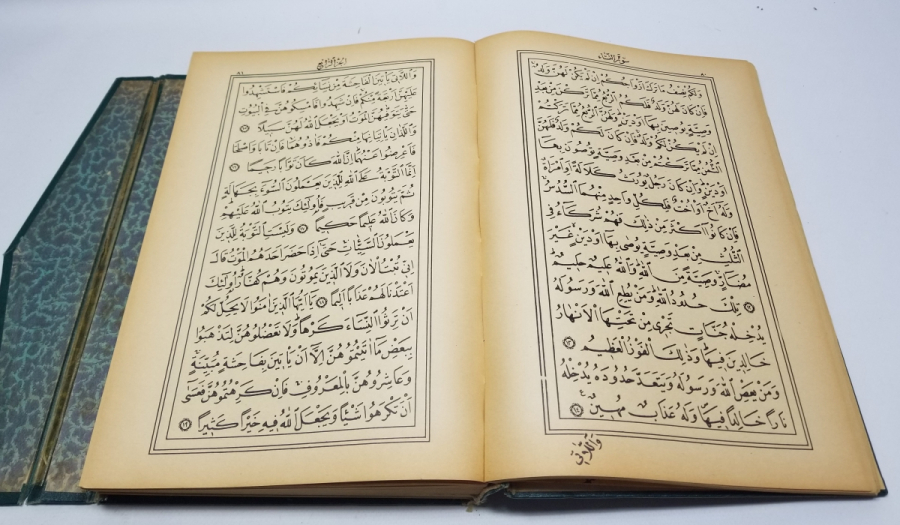 سُورَةُ النِّسَاءِ
٨٠
وَلَكُمْ نِصْفُ مَا تَرَكَ اَزْوَاجُكُمْ اِنْ لَمْ يَكُنْ لَهُنَّ وَلَدٌ
فَاِنْ كَانَ لَهُنَّ وَلَدٌ فَلَكُمُ الرُّبُعُ مِمَّا تَرَكْنَ مِنْ بَعْدِ
وَصِيَّةٍ يُوصِينَ بِهَا اَوْ دَيْنٍ وَلَهُنَّ الرُّبُعُ مِمَّا تَرَكْتُمْ
اِنْ لَمْ يَكُنْ لَكُمْ وَلَدٌ فَاِنْ كَانَ لَكُمْ وَلَدٌ فَلَهُنَّ
الثُّمُنُ مِمَّا تَرَكْتُمْ مِنْ بَعْدِ وَصِيَّةٍ تُوصُونَ بِهَا
اَوْ دَيْنٍ وَاِنْ كَانَ رَجُلٌ يُورَثُ كَلَالَةً اَوِ امْرَاَةٌ
وَلَهُ اَخٌ اَوْ اُخْتٌ فَلِكُلِّ وَاحِدٍ مِنْهُمَا السُّدُسُ
فَاِنْ كَانُوا اَكْثَرَ مِنْ ذٰلِكَ فَهُمْ شُرَكَاءُ فِي
الثُّلُثِ مِنْ بَعْدِ وَصِيَّةٍ يُوصٰى بِهَا اَوْ دَيْنٍ غَيْرَ
مُضَارٍّ وَصِيَّةً مِنَ اللّٰهِ وَاللّٰهُ عَلِيمٌ حَلِيمٌ
١٢ تِلْكَ حُدُودُ اللّٰهِ وَمَنْ يُطِعِ اللّٰهَ وَرَسُولَهُ
يُدْخِلْهُ جَنَّاتٍ تَجْرِي مِنْ تَحْتِهَا الْاَنْهَارُ
خَالِدِينَ فِيهَا وَذٰلِكَ الْفَوْزُ الْعَظِيمُ ١٣
وَمَنْ يَعْصِ اللّٰهَ وَرَسُولَهُ وَيَتَعَدَّ حُدُودَهُ يُدْخِلْهُ
نَارًا خَالِدًا فِيهَا وَلَهُ عَذَابٌ مُهِينٌ ١٤
وَاللَّاتِي
اَلْجُزْءُ الرَّابِعُ
٨١
وَاللَّاتِي يَاْتِينَ الْفَاحِشَةَ مِنْ نِسَائِكُمْ فَاسْتَشْهِدُوا
عَلَيْهِنَّ اَرْبَعَةً مِنْكُمْ فَاِنْ شَهِدُوا فَاَمْسِكُوهُنَّ فِي الْبُيُوتِ
حَتّٰى يَتَوَفّٰيهُنَّ الْمَوْتُ اَوْ يَجْعَلَ اللّٰهُ لَهُنَّ سَبِيلًا ١٥
وَاللَّذَانِ يَاْتِيَانِهَا مِنْكُمْ فَاٰذُوهُمَا فَاِنْ تَابَا وَاَصْلَحَا
فَاَعْرِضُوا عَنْهُمَا اِنَّ اللّٰهَ كَانَ تَوَّابًا رَحِيمًا ١٦
اِنَّمَا التَّوْبَةُ عَلَى اللّٰهِ لِلَّذِينَ يَعْمَلُونَ السُّوءَ بِجَهَالَةٍ
ثُمَّ يَتُوبُونَ مِنْ قَرِيبٍ فَاُولٰئِكَ يَتُوبُ اللّٰهُ عَلَيْهِمْ
وَكَانَ اللّٰهُ عَلِيمًا حَكِيمًا ١٧ وَلَيْسَتِ التَّوْبَةُ لِلَّذِينَ
يَعْمَلُونَ السَّيِّئَاتِ حَتّٰى اِذَا حَضَرَ اَحَدَهُمُ الْمَوْتُ قَالَ
اِنِّي تُبْتُ الْاٰنَ وَلَا الَّذِينَ يَمُوتُونَ وَهُمْ كُفَّارٌ اُولٰئِكَ
اَعْتَدْنَا لَهُمْ عَذَابًا اَلِيمًا ١٨ يَا اَيُّهَا الَّذِينَ اٰمَنُوا لَا يَحِلُّ لَكُمْ
اَنْ تَرِثُوا النِّسَاءَ كَرْهًا وَلَا تَعْضُلُوهُنَّ لِتَذْهَبُوا
بِبَعْضِ مَا اٰتَيْتُمُوهُنَّ اِلَّا اَنْ يَاْتِينَ بِفَاحِشَةٍ مُبَيِّنَةٍ
وَعَاشِرُوهُنَّ بِالْمَعْرُوفِ فَاِنْ كَرِهْتُمُوهُنَّ فَعَسٰى
اَنْ تَكْرَهُوا شَيْئًا وَيَجْعَلَ اللّٰهُ فِيهِ خَيْرًا كَثِيرًا ١٩